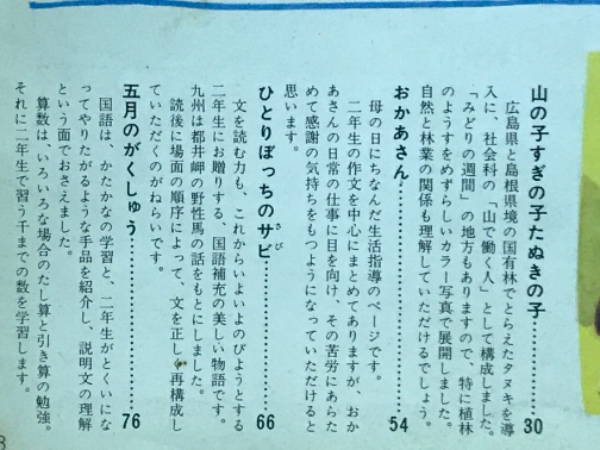 山の子すぎの子たぬきの子…………30
広島県と島根県境の国有林でとらえたタヌキを導
入に、社会科の「山で働く人」として構成しました。
「みどりの週間」の地方もありますので、特に植林
のようすをめずらしいカラー写真で展開しました。
自然と林業の関係も理解していただけるでしょう。
おかあさん……………………………54
母の日にちなんだ生活指導のページです。
二年生の作文を中心にまとめてありますが、おか
あさんの日常の仕事に目を向け、その苦労にあらた
めて感謝の気持ちをもつようになっていただけると
思います。
ひとりぼっちのサビ…………………66
さび
文を読む力も、これからいよいよのびようとする
二年生にお贈りする、国語補充の美しい物語です。
九州は都井岬の野性馬の話をもとにしました。
読後に場面の順序によって、文を正しく再構成し
ていただくのがねらいです。
五月のがくしゅう……………………76
国語は、かたかなの学習と、二年生がとくいにな
ってやりたがるような手品を紹介し、説明文の理解
という面でおさえました。
算数は、いろいろな場合のたし算と引き算の勉強。
それに二年生で習う千までの数を学習します。